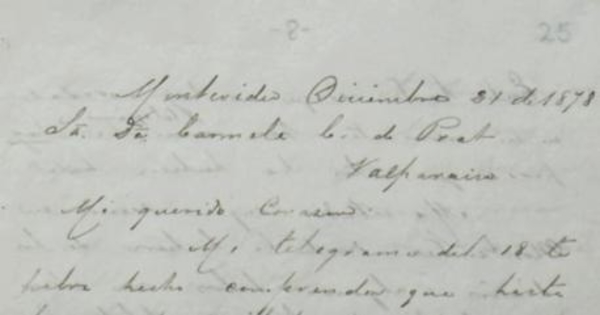 -8-
25
Montevideo Diciembre 21 de 1878
Sa. Da. Carmela C. de Prat
Valparaiso
Mi querido Corazon:
Mi telegrama del 18 te
habra hecho comprender que hasta